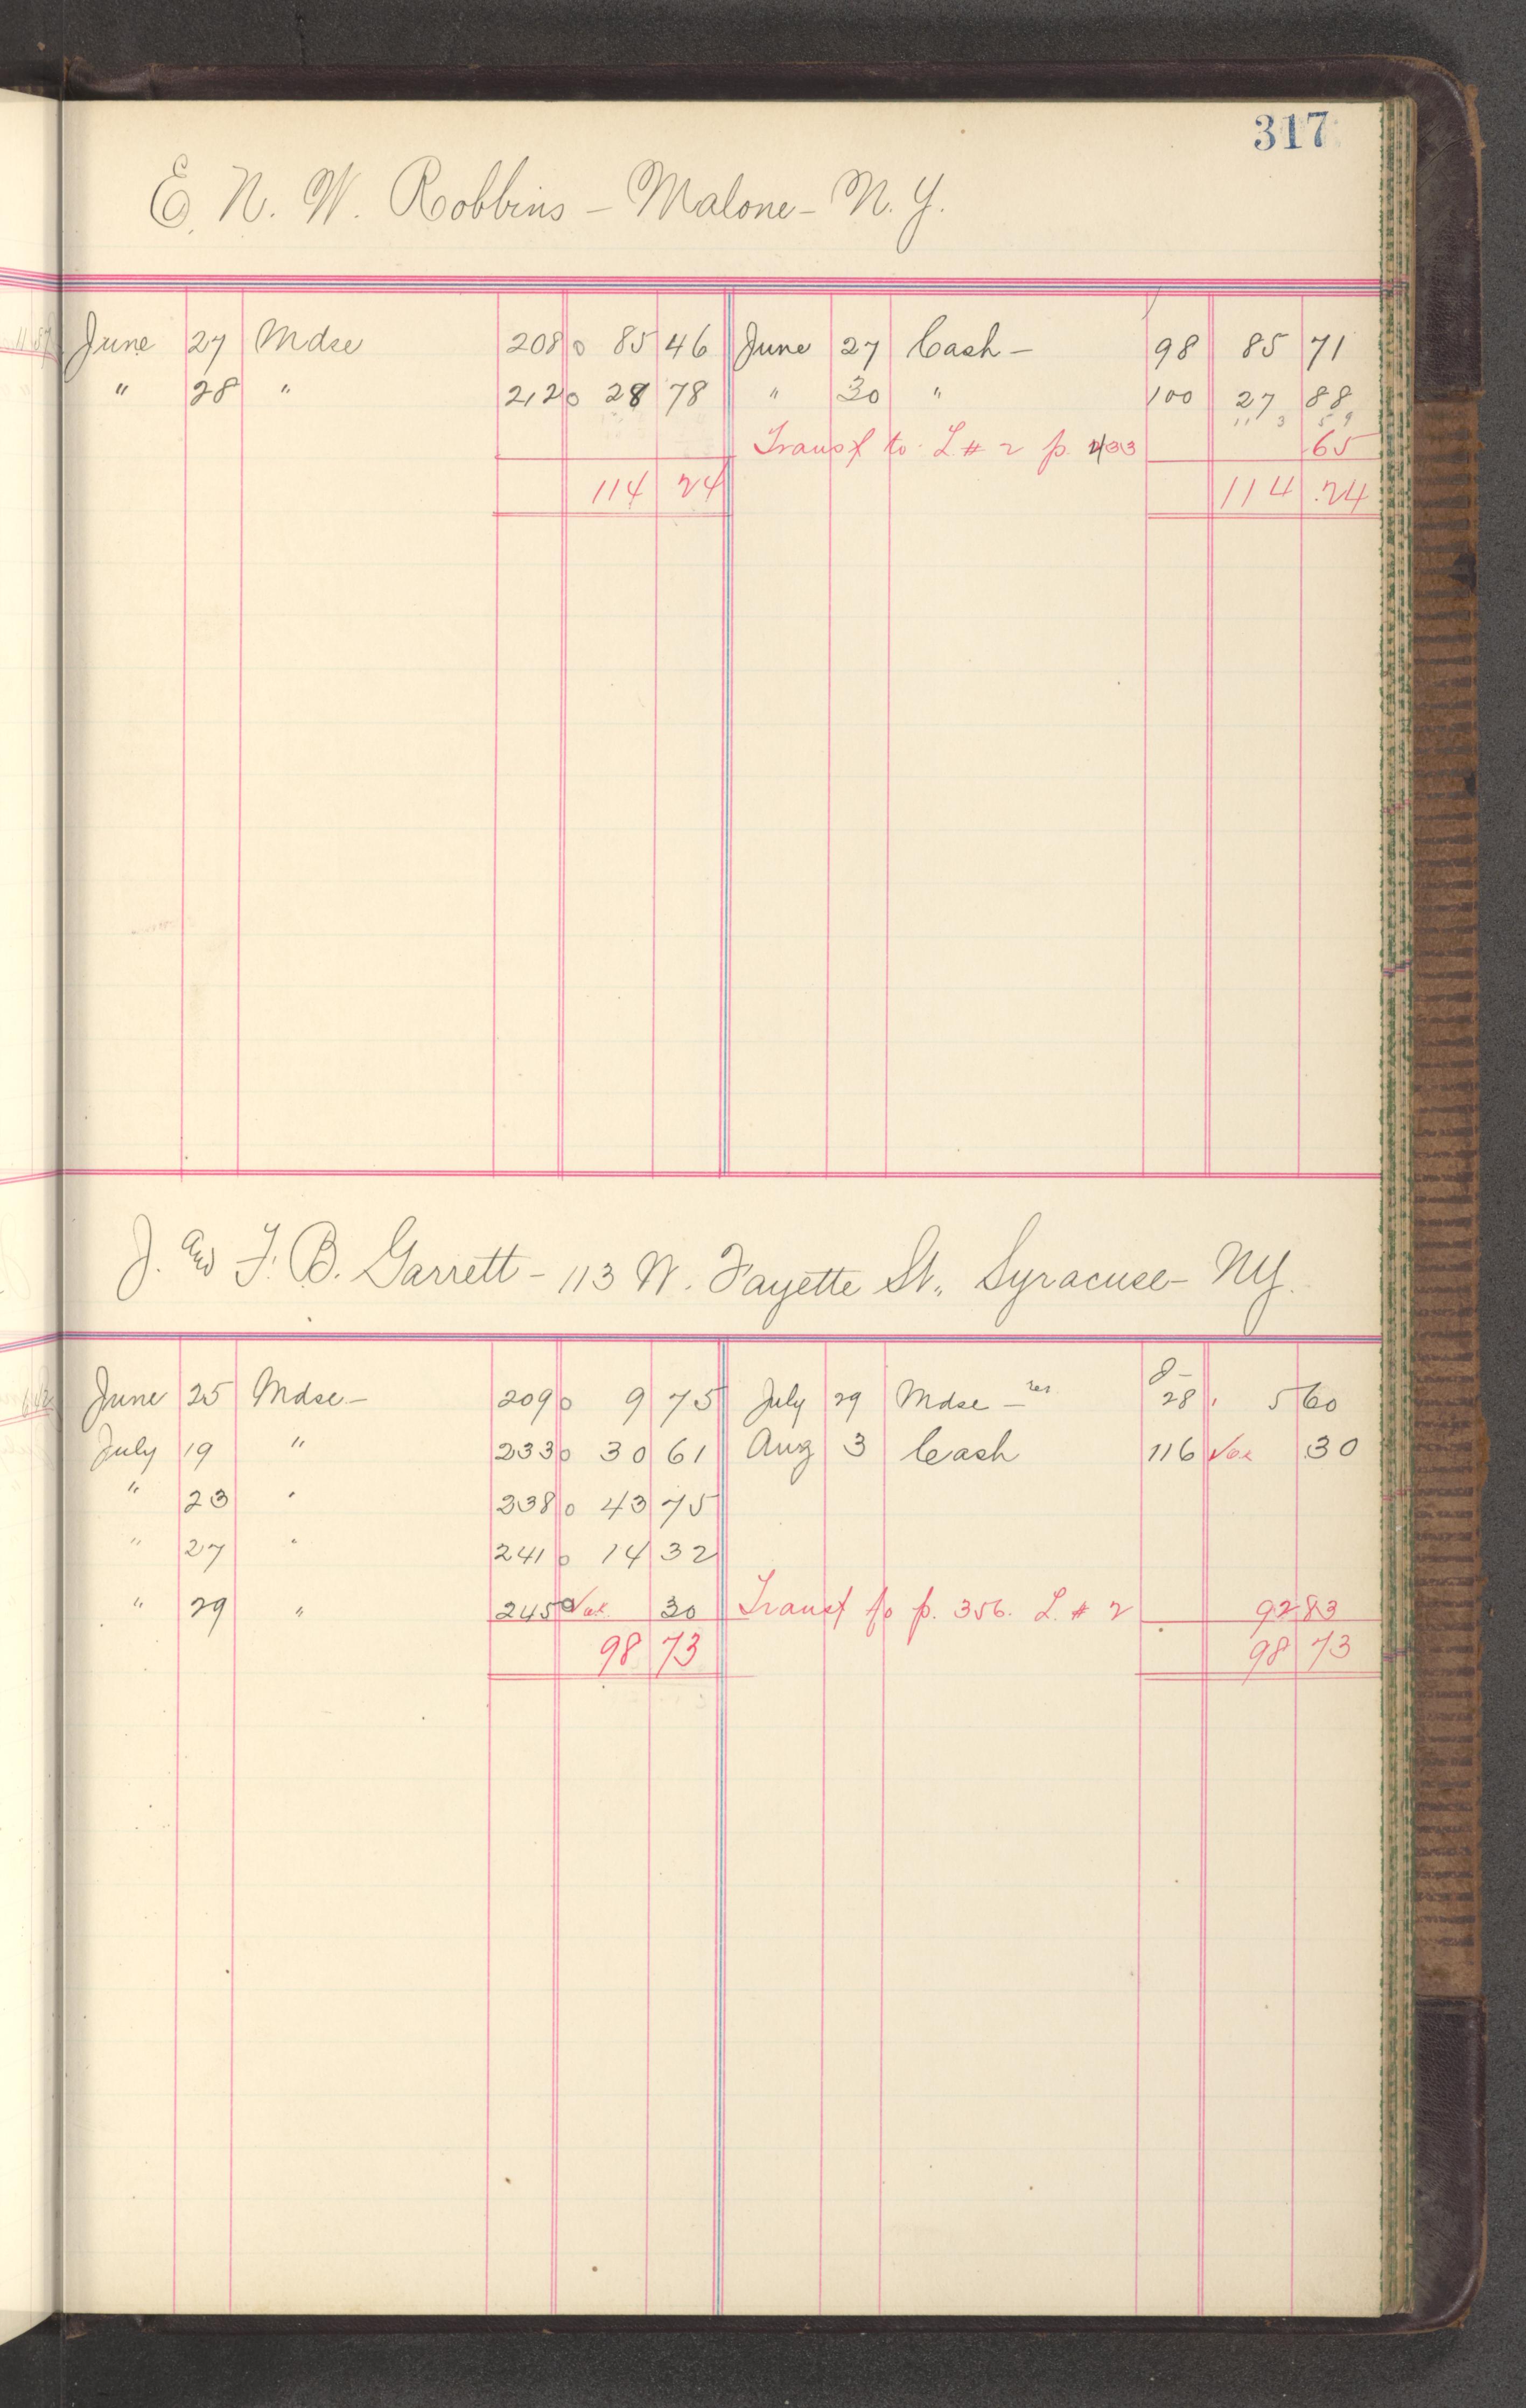 317
E. N. W. Robbins - Malone - N. Y.
June 27 Mdse 208 0 85 46 June 27 Cash - 98 85 71
" 28 " 212 0 28 78 " 30 " 100 27 88
11 3 5 9
Transf to L # 2 p. 433 65
114 24 114 24
J. and F. B. Garrett - 113 W. Fayette St., Syracuse - NY.
8-
June 25 Mdse - 209 0 9 75 July 29 Mdse - 28 5 60
July 19 " 233 0 30 61 Aug 3 Cash 116 30
" 23 " 238 0 43 75
" 27 " 241 0 14 32
" 29 " 245 0 30 Transf to p. 356. L. # 2 92 83
98 73 98 73